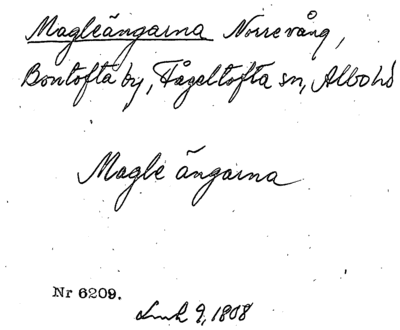 Magleängarna Norrevång,
Bontofta by, Fågeltofta sn, Albo hd
Magle ängarna
Nr 6209.
Lmh 9, 1808